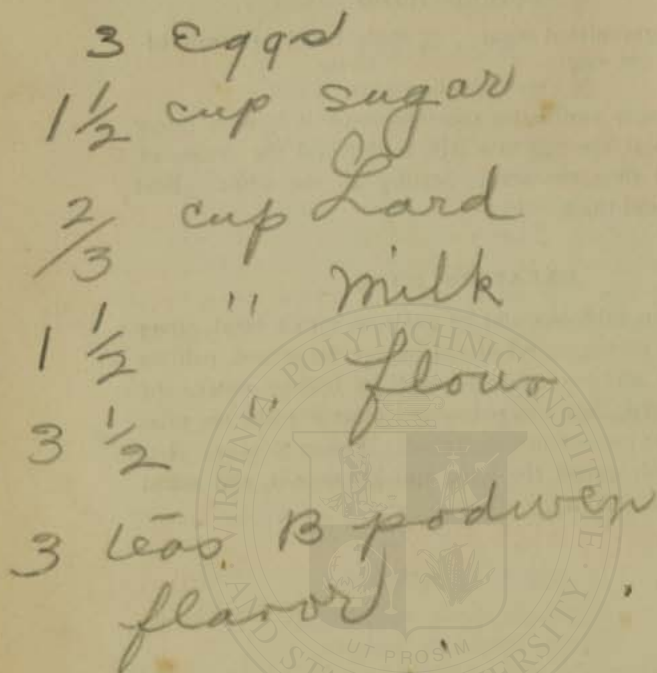 3 Eggs
1 1/2 cup sugar
2/3 cup Lard
1 1/2 " milk
3 1/2 " flour
3 teas B podwer
flavor
VIRGINIA POLYTECHNIC INSTITUTE
AND STATE UNIVERSITY
UT PROSIM